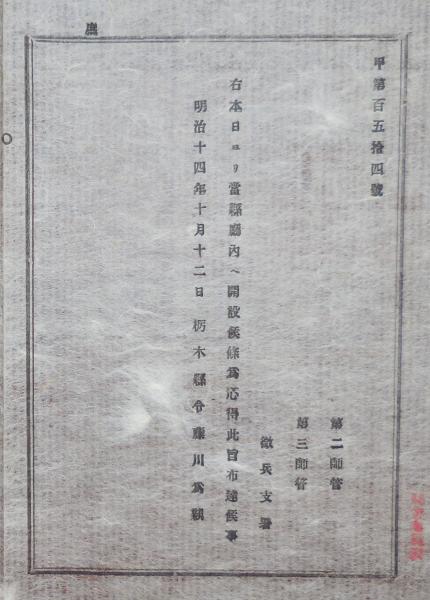 甲第百五拾四號
第二師管
第三師管
徴兵支署
右本日ヨリ當縣廳內ヘ開設候條爲心得此旨布達候事
明治十四年十月十二日 栃木縣令藤川爲親
廳